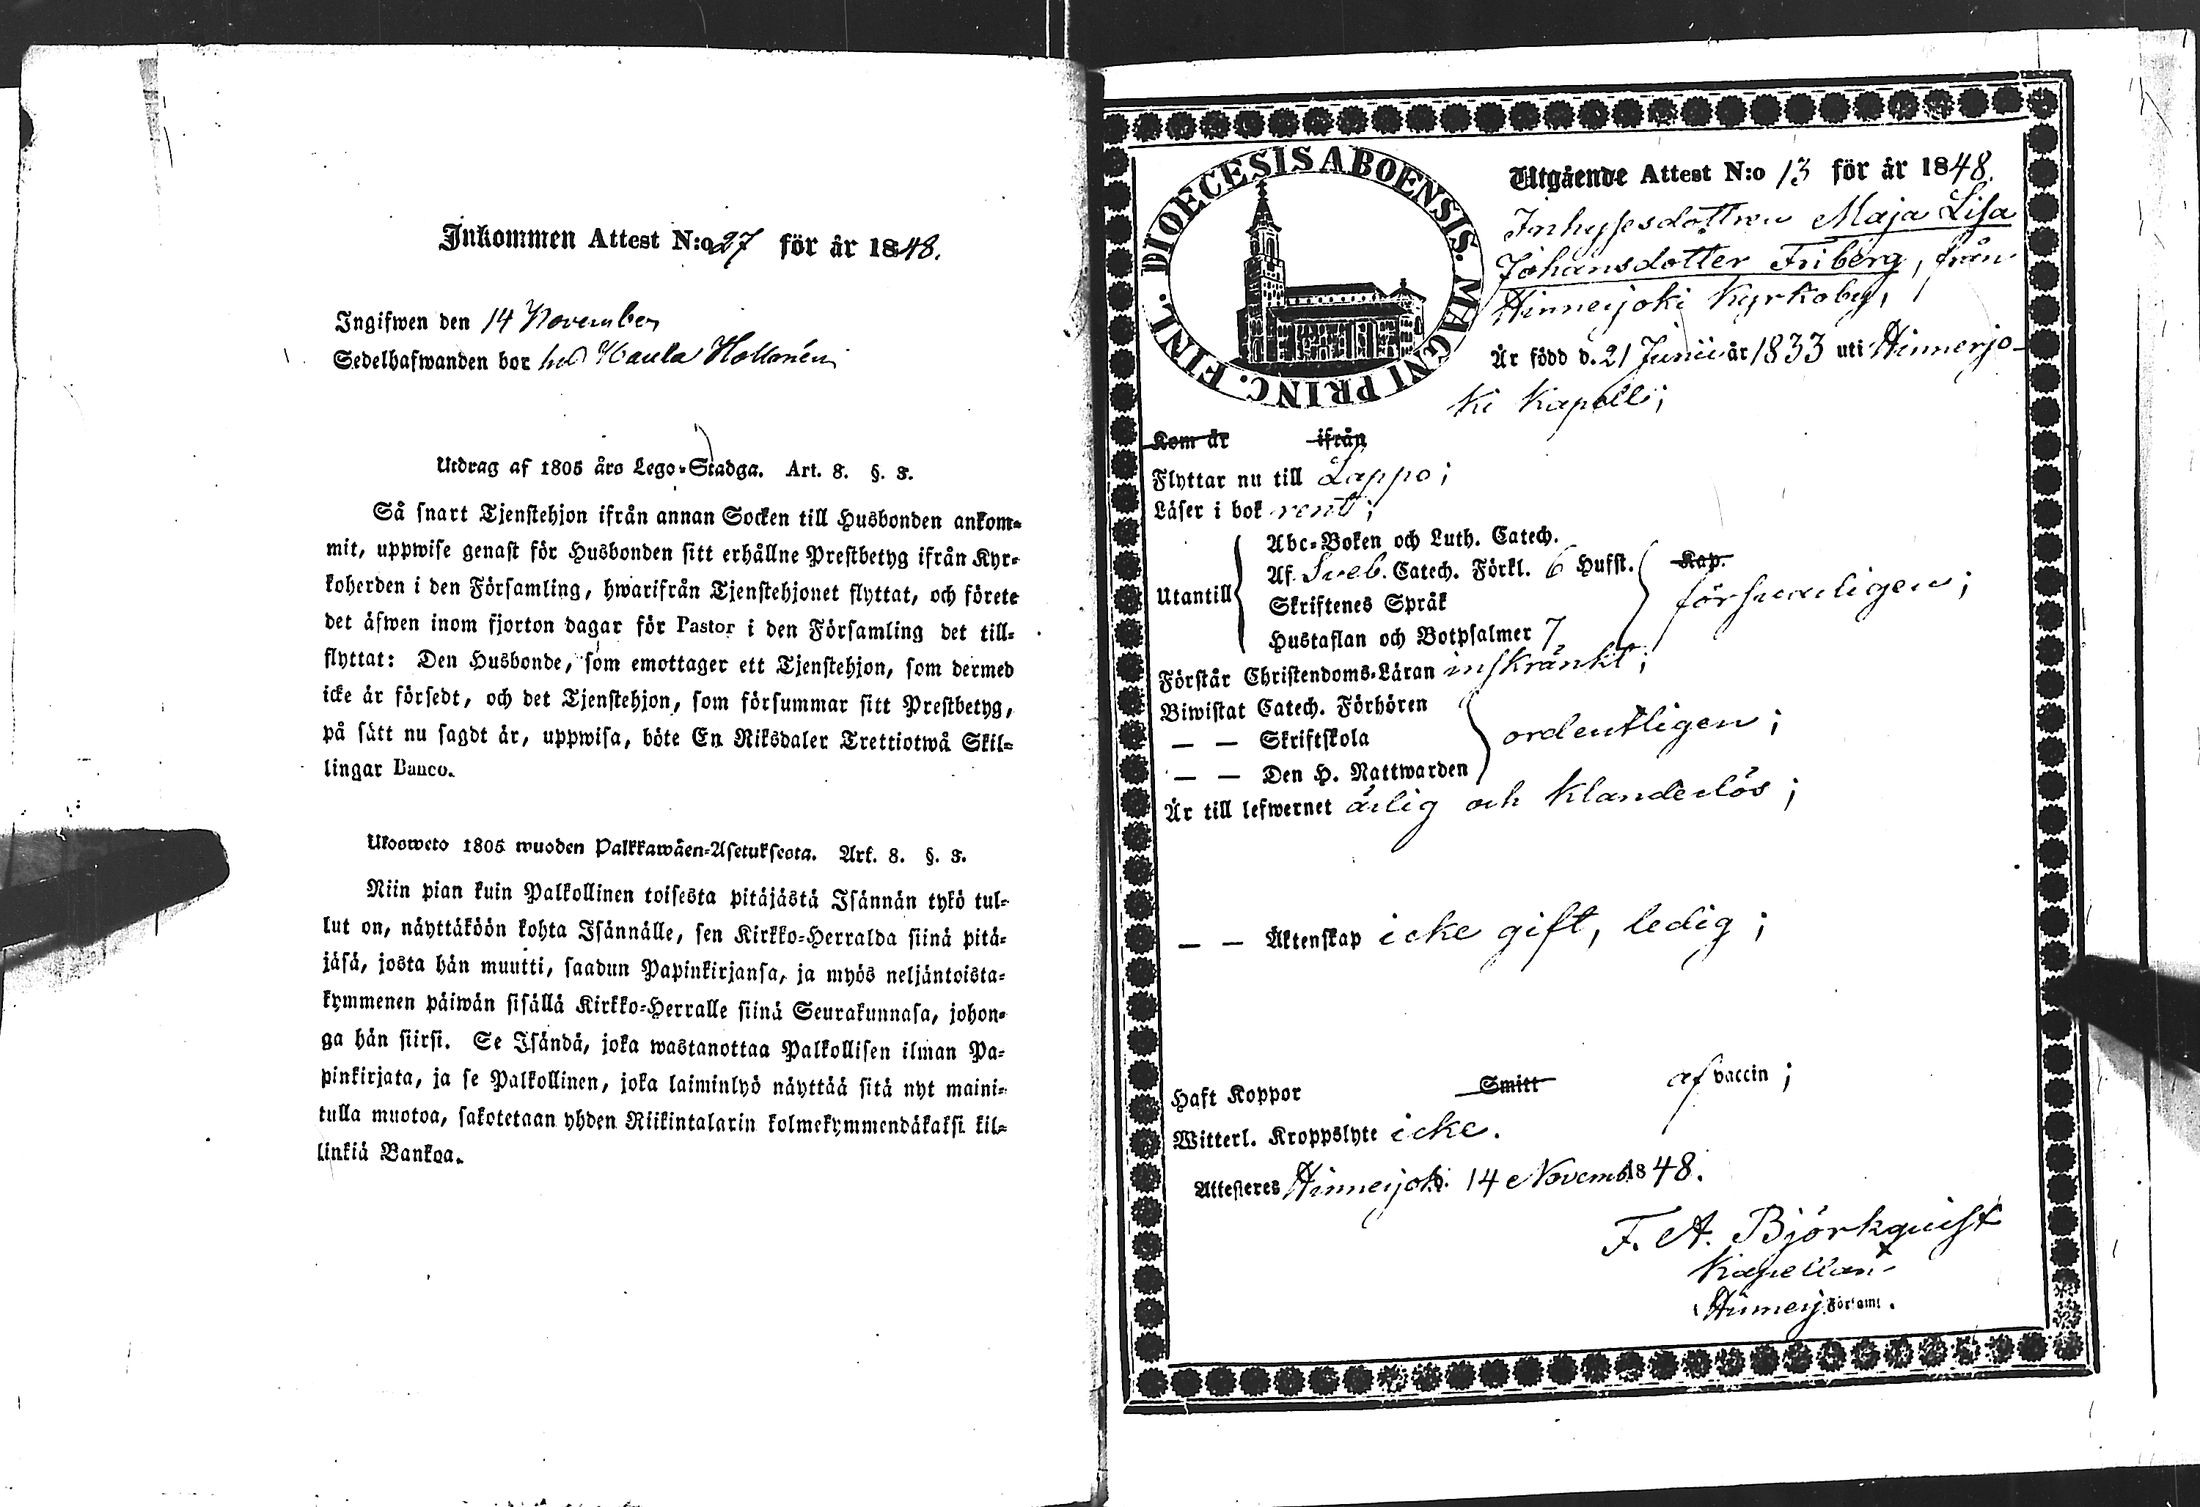 Inkommen Attest N:o 27 för år 1848.
Ingifwen den 14 November
Sedelhafwanden bor hos Kaula
Utdrag af 1805 års Lego-Stadga. Art. 8. §. 3.
Så snart Tjenstehjon ifrån annan Socken till Husbonden ankom-
mit, uppwise genast för Husbonden sitt erhållne Prestbetyg ifrån Kyr-
koherden i den Församling, hwarifrån Tjenstehjonet flyttat, och förete
det äfwen inom fjorton dagar för Pastor i den Församling det till-
flyttat: Den Husbonde, som emottager ett Tjenstehjon, som dermed
icke är försedt, och det Tjenstehjon, som försummar sitt Prestbetyg,
på sätt nu sagdt är, uppwisa, böte En Riksdaler Trettiotwå Skil-
lingar Banco.
Ulosweto 1805 wuoden Palkkawäen-Asetuksesta. Art. 8. §. 3.
Niin pian kuin Palkollinen toisesta pitäjästä Isännän tykö tul-
lut on, näyttäköön kohta Isännälle, sen Kirkko-Herralda siinä pitä-
jäsä, josta hän muutti, saadun Papinkirjansa, ja myös neljäntoista-
kymmenen päiwän sisällä Kirkko-Herralle siinä Seurakunnasa, johon-
ga hän siirsi. Se Isändä, joka wastanottaa Palkollisen ilman Pa-
pinkirjata, ja se Palkollinen, joka laiminlyö näyttää sitä nyt maini-
tulla muotoa, sakotetaan yhden Riikintalarin kolmekymmendäkaksi kil-
linkiä Bankoa.
DIOECESIS ABOENSIS. MAGNI PRINC. FINL.
Utgående Attest N:o 13 för år 1848.
Inhysesdottren Maja Lisa
Johansdotter Friberg, från
Hinnerjoki Kyrkoby,
Är född d. 21 Junii år 1833 uti Hinnerjo-
ki Kapell;
Kom år ifrån
Flyttar nu till Lappo;
Läser i bok rent;
Abc-Boken och Luth. Catech.
Af Sveb. Catech. Förkl. 6 Hufst. Kap.
Utantill Skriftenes Språk försvarligen;
Hustaflan och Botpsalmer 7
Förstår Christendoms-Läran inskränkt;
Biwistat Catech. Förhören
— — Skriftskola ordentligen;
— — Den H. Nattwarden
Är till lefwernet ärlig och klanderlös;
— — Äktenskap icke gift, ledig;
Haft Koppor Smitt af vaccin;
Witterl. Kroppslyte icke.
Attesteres Hinnerjoki. 14 Novemb. 1848.
F. A. Björkqvist
Kapellan
Hinnerj. Församl.